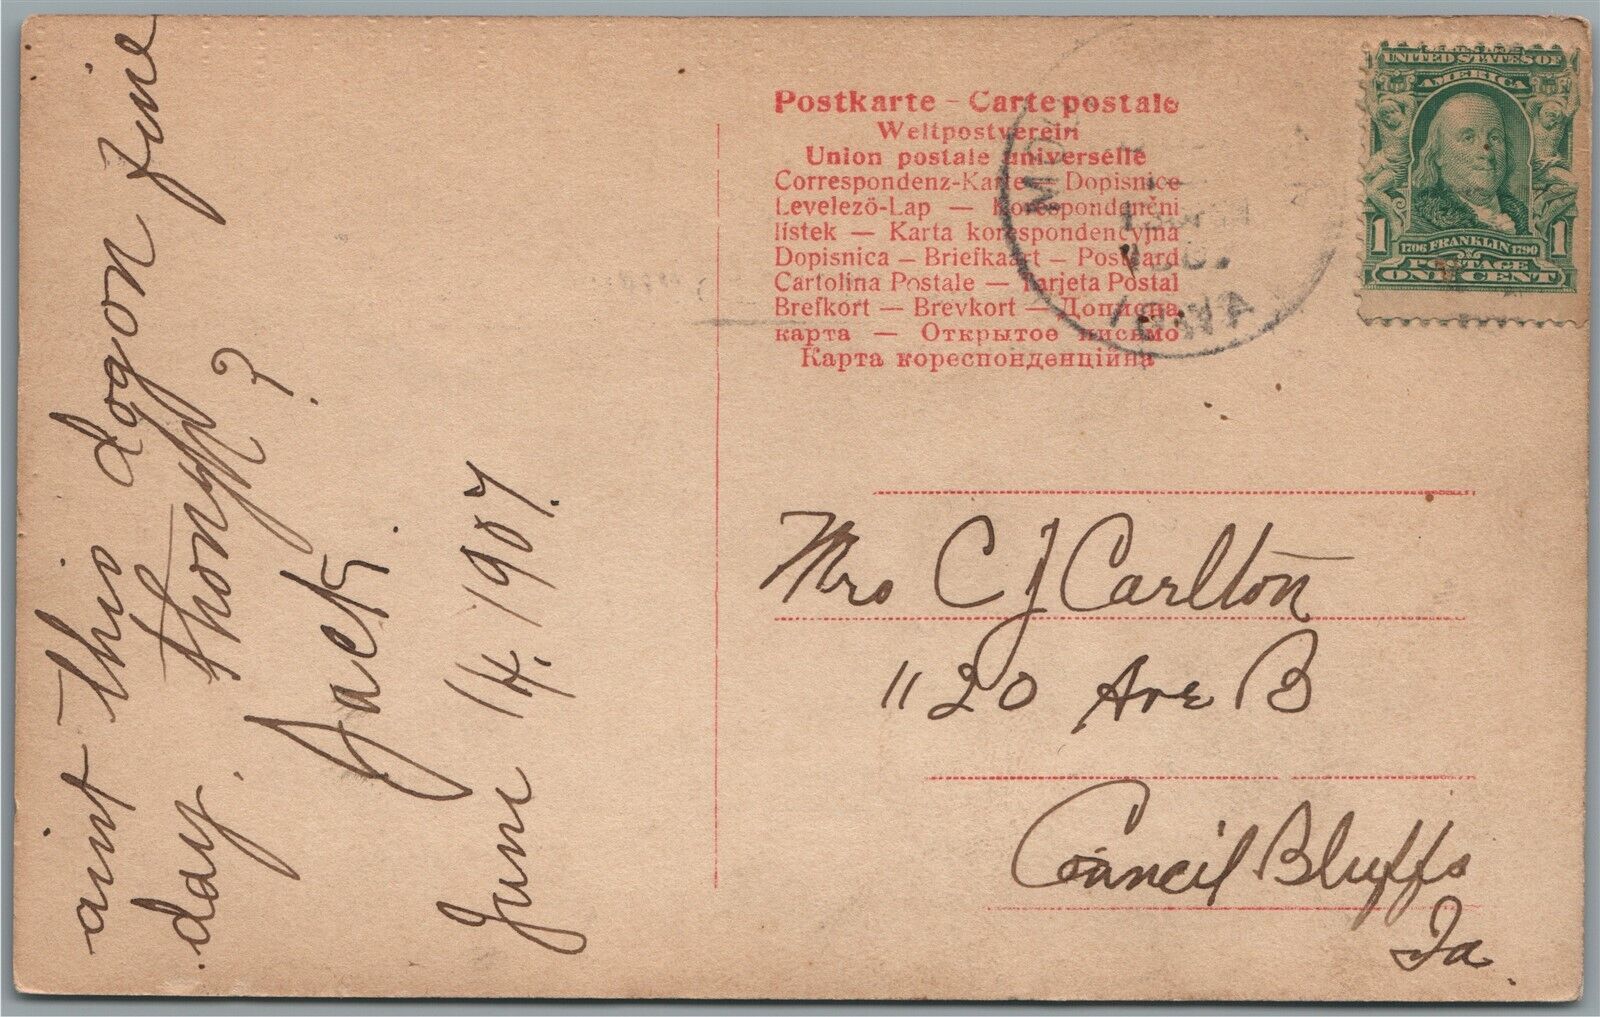 aint this dogon fine
day.
thonyh?
Jack.
June 14. 1907.
Postkarte - Carte postale
Weltpostverein
Union postale universelle
Correspondenz-Karte — Dopisnice
Levelező-Lap — Korespondenční
lístek — Karta korespondencyjna
Dopisnica — Briefkaart — Postcard
Cartolina Postale — Tarjeta Postal
Brefkort — Brevkort — Дописна
карта — Открытое письмо
Карта кореспонденційна
IOWA
UNITED STATES OF
AMERICA
1 1706 FRANKLIN 1790 1
POSTAGE
ONE CENT
Mrs C J Carlton
1120 Ave B
Council Bluffs
Ia.